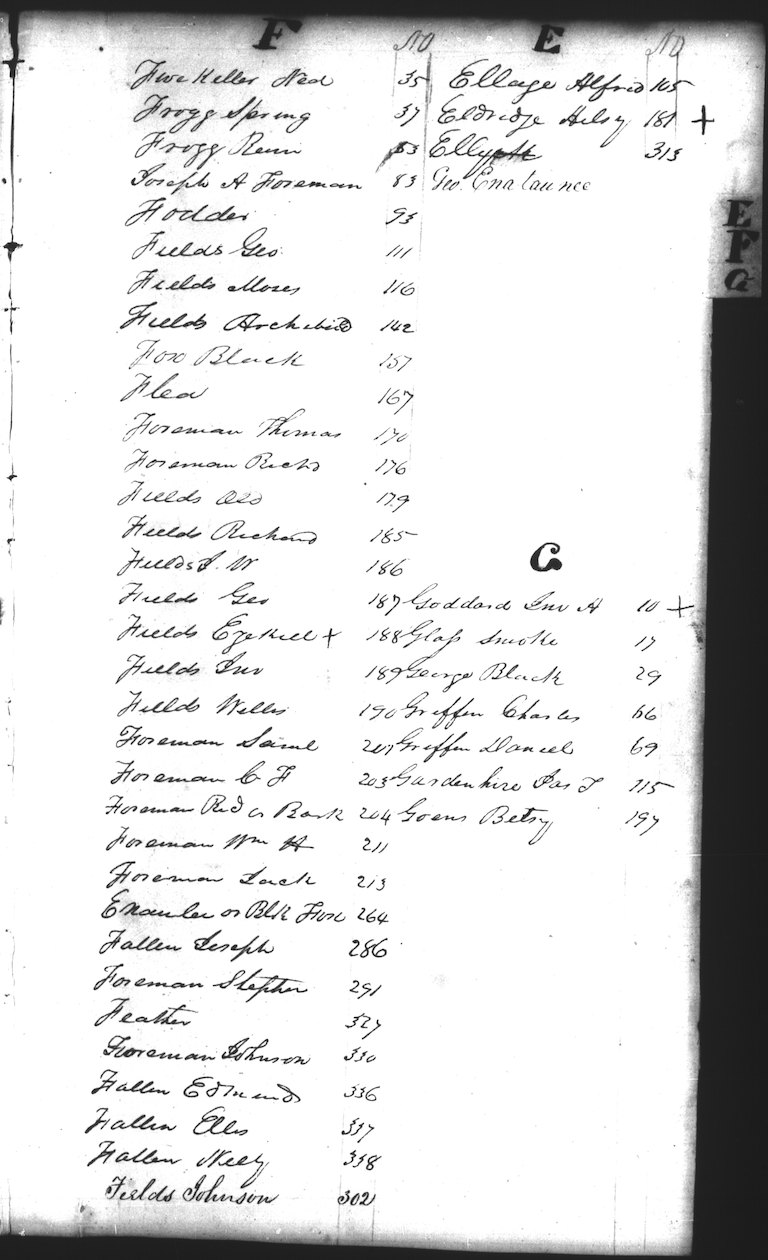 F No
Five Keller Ned 35
Frogg Spring 37
Frogg 83
Joseph A Foreman 83
Fodder 93
Fields Geo 111
Fields Moses 116
Fields Archibald 142
Fox Black 157
Flea 167
Foreman Thomas 170
Foreman Richd 176
Fields Old 179
Fields Richard 185
Fields J. W 186
Fields Geo 187
Fields Ezekiel + 188
Fields Jno 189
Fields Willis 190
Foreman Saml 201
Foreman C F 203
Foreman Red or Bark 204
Foreman Wm H 211
Foreman Jack 213
or Blk Fox 264
Fallen Joseph 286
Foreman Stephen 291
Feather 327
Foreman Johnson 330
Fallen Edmund 336
Fallen Ellis 337
Fallen Nelly 338
Fields Johnson 302
E No
Ellage Alfred 105
Eldridge Hilsy 181 +
313
Geo. Enataunee
E
F
G
G
Goddard Jno A 10 +
Glass Smoke 17
George Black 29
Griffin Charles 66
Griffin Daniel 69
Gardenhire Jas T 115
Goens Betsy 197